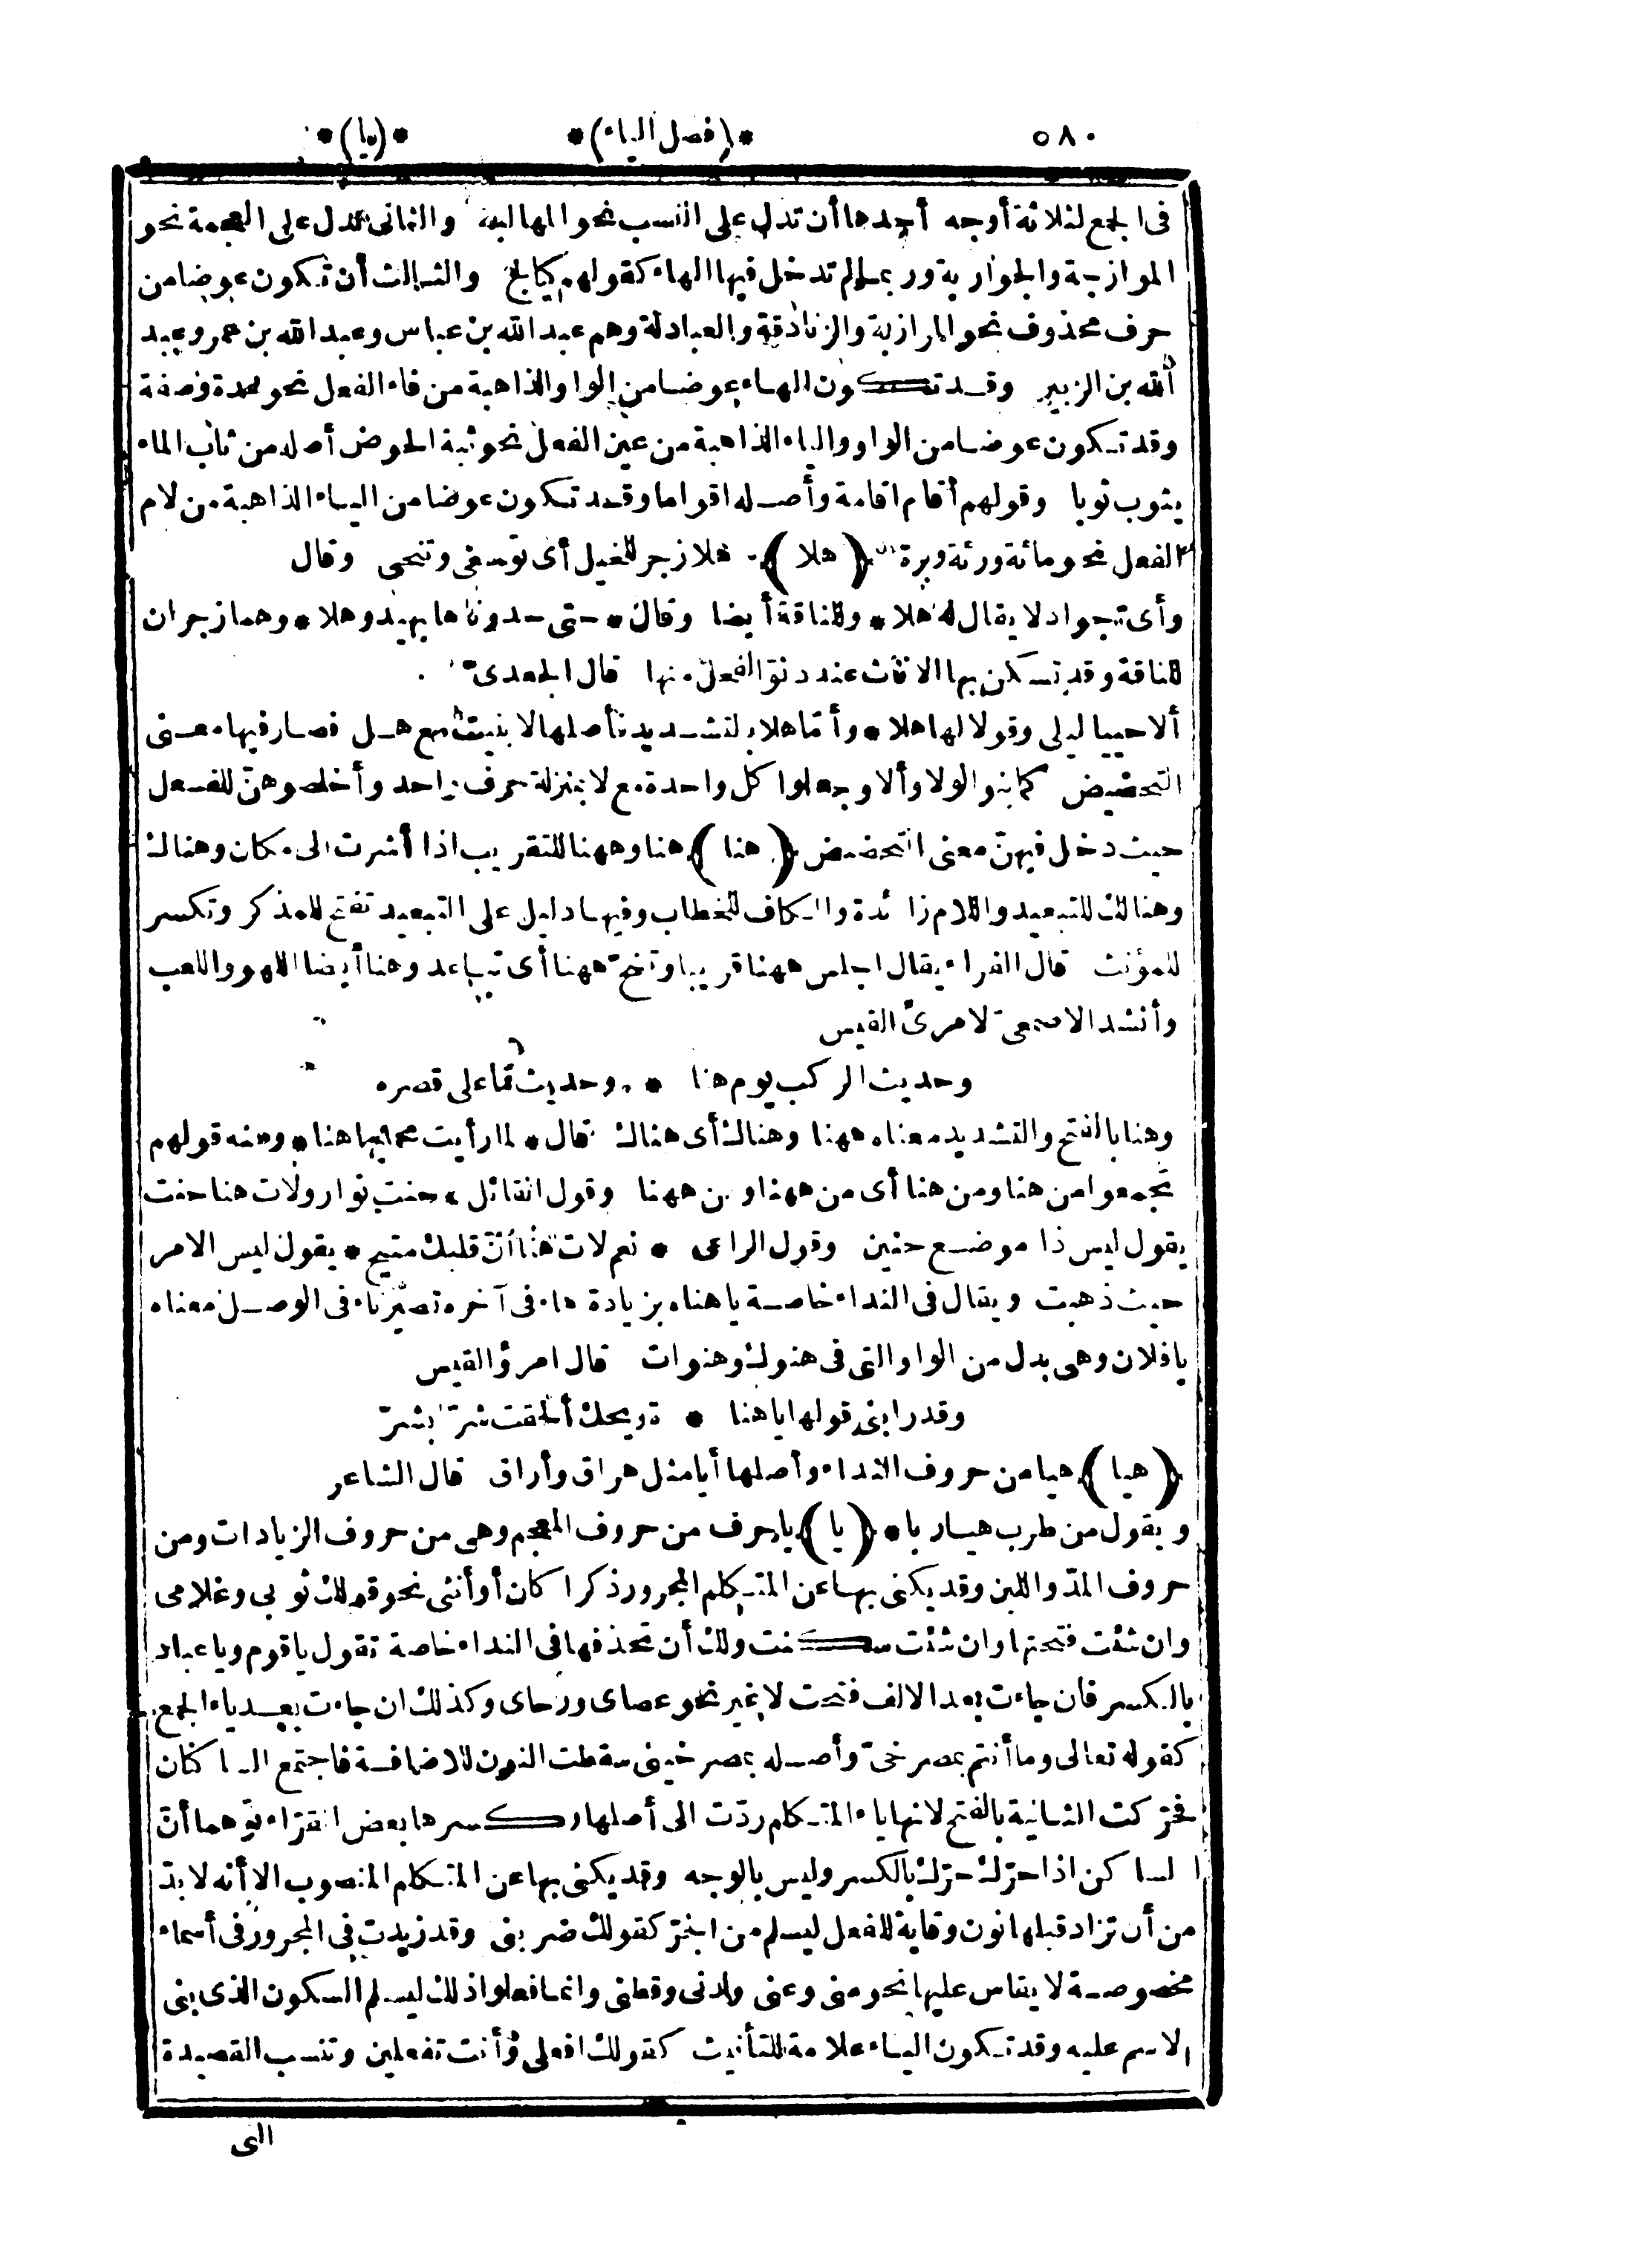 ٥٨٠ *(فصل الياء)* *(يا)*
فى الجمع لثلاثة أوجه أحدها أن تدل على النسب نحو المهالبة والثانى تدل على العجمة نحو
الموازجة والجواربة وربما لم تدخل فيها الهاء كقولهم كيالج والثالث أن تكون عوضا من
حرف محذوف نحو المرازبة والزنادقة والعبادلة وهم عبد الله بن عباس وعبد الله بن عمر وعبد
الله بن الزبير وقد تكون الهاء عوضا من الواو الذاهبة من فاء الفعل نحو عدة وصفة
وقد تكون عوضا من الواو والياء الذاهبة من عين الفعل نحو ثبة الحوض أصله من ثاب الماء
يثوب ثوبا وقولهم أقام اقامة وأصله اقواما وقد تكون عوضا من الياء الذاهبة من لام
الفعل نحو مائة ورئة وبرة ﴿هلا﴾ هلا زجر للخيل أى توسعى وتنحى وقال
وأى جواد لا يقال له هلا * وللناقة أيضا وقال * حتى حدوناها بهيد وهلا * وهما زجران
للناقة وقد تسكن بها الاناث عند دنو الفحل منها قال الجعدىّ
ألا حييا ليلى وقولا لها هلا * وأمّا هلا بالتشديد فأصلها لا بنيت مع هل فصار فيها معنى
التحضيض كما بنوا لولا وألا وجعلوا كل واحدة مع لا بمنزلة حرف واحد وأخلصوهنّ للفعل
حيث دخل فيهنّ معنى التحضيض ﴿هنا﴾ هنا وههنا للتقريب اذا أشرت الى مكان وهناك
وهنالك للتبعيد واللام زائدة والكاف للخطاب وفيها دليل على التبعيد تفتح للمذكر وتكسر
للمؤنث قال الفراء يقال اجلس ههنا قريبا وتنحّ ههنا أى تباعد وهنا أيضا اللهو واللعب
وأنشد الاصمعىّ لامرئ القيس
وحديث الركب يوم هنا * وحديث مّا على قصره
وهنا بالفتح والتشديد معناه ههنا وهناك أى هناك قال * لما رأيت محمليها هنا * ومنه قولهم
تجمعوا من هنا ومن هنا أى من ههنا ومن ههنا وقول القائل * حنت نوار ولات هنا حنت
يقول ليس ذا موضع حنين وقول الراعى * نعم لات هنّا أنّ قلبك متيح * يقول ليس الامر
حيث ذهبت ويقال فى النداء خاصة يا هناه بزيادة هاء فى آخره تصير تاء فى الوصل معناه
يا فلان وهى بدل من الواو التى فى هنوك وهنوات قال امرؤ القيس
وقد رابنى قولها يا هنا * ه ويحك ألحقت شرّا بشرّ
﴿هيا﴾ هيا من حروف النداء وأصلها أيا مثل هراق وأراق قال الشاعر
ويقول من طرب هيا ربا * ﴿يا﴾ يا حرف من حروف المعجم وهى من حروف الزيادات ومن
حروف المدّ واللين وقد يكنى بها عن المتكلم المجرور ذكرا كان أو أنثى نحو قولك ثوبى وغلامى
وان شئت فتحتها وان شئت سكنت ولك أن تحذفها فى النداء خاصة تقول يا قوم ويا عباد
بالكسر فان جاءت بعد الالف فتحت لا غير نحو عصاى ورحاى وكذلك ان جاءت بعد ياء الجمع
كقوله تعالى وما أنتم بمصرخىّ وأصله بمصرخينى سقطت النون للاضافة فاجتمع الساكنان
فحرّكت الثانية بالفتح لانها ياء المتكلم ردّت الى أصلها وكسرها بعض القرّاء توهما أنّ
الساكن اذا حرّك حرّك بالكسر وليس بالوجه وقد يكنى بها عن المتكلم المنصوب الا أنه لا بدّ
من أن تزاد قبلها نون وقاية للفعل ليسلم من الجرّ كقولك ضربنى وقد زيدت فى المجرور فى أسماء
مخصوصة لا يقاس عليها نحو منى وعنى ولدنى وقطنى وانما فعلوا ذلك ليسلم السكون الذى بنى
الاسم عليه وقد تكون الياء علامة للتأنيث كقولك افعلى وأنت تفعلين وتنسب القصيدة
التى